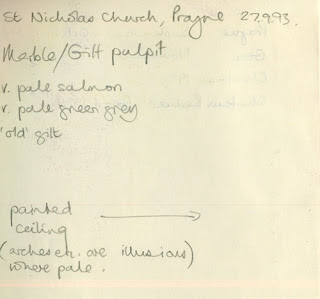 St Nicholas Church, Prague 27.9.93.
Marble/Gilt pulpit
v. pale salmon
v. pale green grey
'old' gilt
painted
ceiling
(arches etc. are illusions)
where pale.